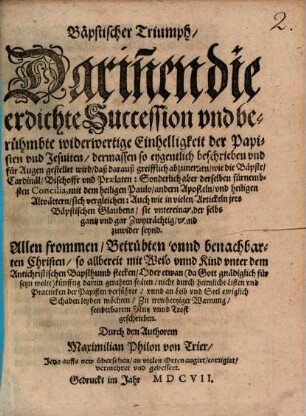 2.
Bäpstischer Triumph/
Darinnen die
erdichte Succession vnd be-
rühmbte widerwertige Einhelligkeit der Papi-
sten vnd Jesuiten / dermassen so eygentlich beschrieben vnd
für Augen gestellet wird/ daß darauß greifflich abzunemen/ wie die Bäpste/
Cardinäl/ Bischoffe vnd Praelaten: Sonderlich aber derselben fürnemb-
sten Concilia, mit dem heiligen Paulo/ andern Aposteln/ vnd heiligen
Altvättern/ sich vergleichen: Auch wie in vielen Artickeln jres
Bäpstischen Glaubens/ sie vntereinander selbs
gantz vnd gar Zwyträchtig/ vnd
zuwider seynd.
Allen frommen/ Betrübten vnnd benachbar-
ten Christen/ so allbereit mit Weib vnnd Kind vnter dem
Antichristischen Bapsthumb stecken/ Oder etwan (da Gott gnädiglich für
seyn wolte) künfftig darein gerahten solten/ nicht durch heimliche Listen vnd
Practicken der Papisten verführet/ vnnd an Leib vnd Seel ewiglich
Schaden leyden möchten/ Zu trewhertziger Warnung/
sonderbarem Nutz vnnd Trost
geschrieben.
Durch den Authorem
Maximilian Philon von Trier/
Jetzo auffs new vbersehen/ an vielen Orten augirt/ corrigirt/
vermehret vnd gebessert.
Gedruckt im Jahr MDCVII.